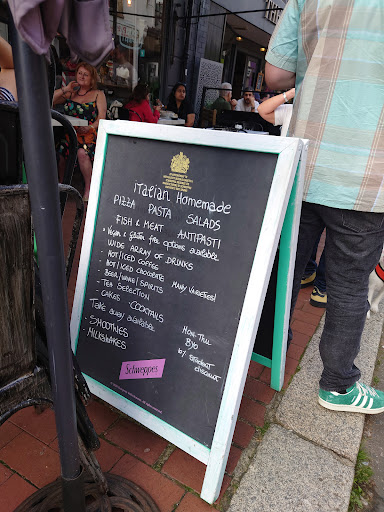 italian Homemade
PIZZA PASTA SALADS
FISH & MEAT ANTIPASTI
* Vegan & gluten free options available
WIDE ARRAY OF DRINKS
- HOT/ICED COFFEE
- HOT/ICED CHOCOLATE MANY VARIETIES!
- BEER/WINE/SPIRITS
- TEA SELECTION
- CAKES - COCKTAILS
Take away available
- SMOOTHIES
- MILKSHAKES
Schweppes